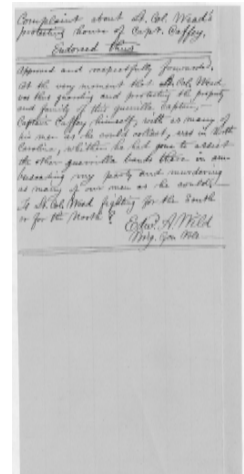 Complaint about Lt. Col. Wead's
protecting house of Capt. Caffey.
Endorsed thus
Approved and respectfully forwarded.
At the very moment that Lt. Col. Wead
was thus guarding and protecting the property
and family of this guerrilla Captain,—
Captain Caffey himself, with as many of
his men as he could collect, was in North
Carolina, whither he had gone to assist
the other guerrilla bands there in am-
buscading my party and murdering
as many of our men as he could.—
Is Lt. Col. Wead fighting for the South
or for the North?
Edw. A. Wild
Brig. Gen. Vols.